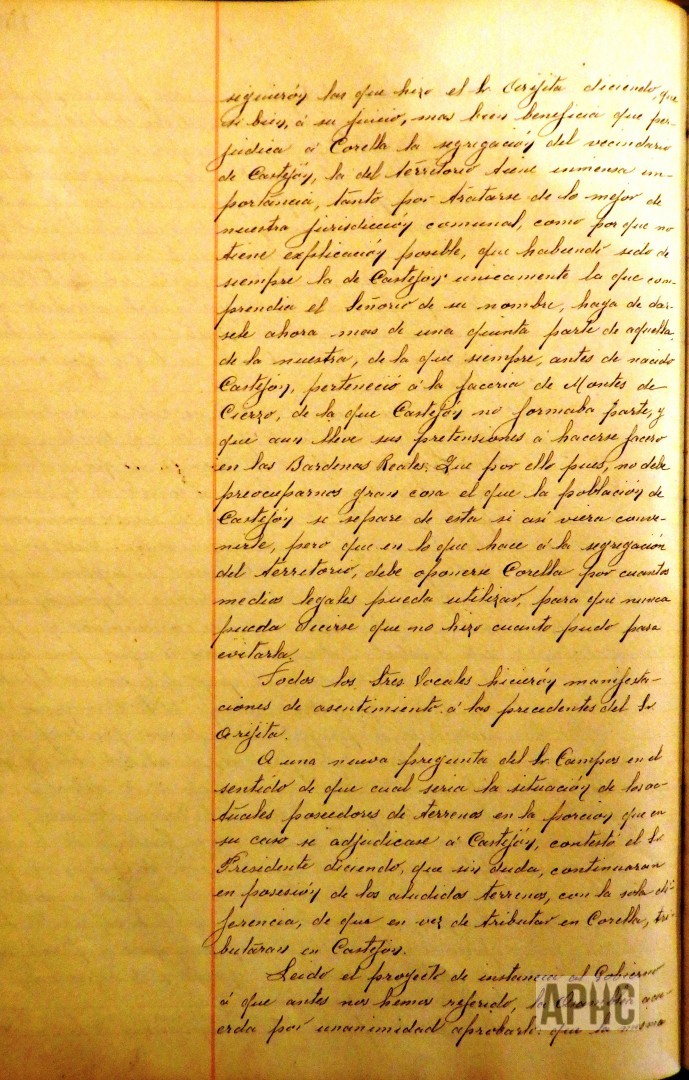 siguierón las que hizo el Sr Arijita diciendo, que
si bien, á su juicio, mas bien beneficia que per-
judica á Corella la segregación del vecindario
de Castejón, la del territorio tiene inmensa im-
portancia, tanto por tratarse de lo mejor de
nuestra jurisdicción comunal, como por que no
tiene explicación posible, que habiendo sido de
siempre la de Castejon unicamente la que com-
prendia el Señorio de su nombre, haya de dar-
sele ahora mas de una quinta parte de aquella,
de la nuestra, de la que siempre, antes de nacido
Castejón, perteneció á la faceria de Montes de
Cierzo, de la que Castejón no formaba parte, y
que aun lleve sus pretensiones á hacerse facero
en las Bardenas Reales. Que por ello pues, no debe
preocuparnos gran cosa el que la población de
Castejón se separe de esta si asi viera conve-
nirle, pero que en lo que hace á la segregación
del territorio, debe oponerse Corella por cuantos
medios legales pueda utilizar, para que nunca
pueda decirse que no hizo cuanto pudo para
evitarla.
Todos los Sres. Vocales hicierón manifesta-
ciones de asentimiento á las precedentes del Sr
Arijita.
A una nueva pregunta del Sr Campos en el
sentido de que cual seria la situación de los ac-
tuales poseedores de terrenos en la porcion que en
su caso se adjudicase á Castejón, contestó el Sr
Presidente diciendo, que sin duda, continuaran
en posesión de los aludidos terrenos, con la sola di-
ferencia, de que en vez de tributar en Corella, tri-
butaran en Castejon.
Leido el proyecto de instancia al Gobierno
á que antes nos hemos referido, la Asamblea acu-
erda por unanimidad aprobarlo: que la misma
APHC